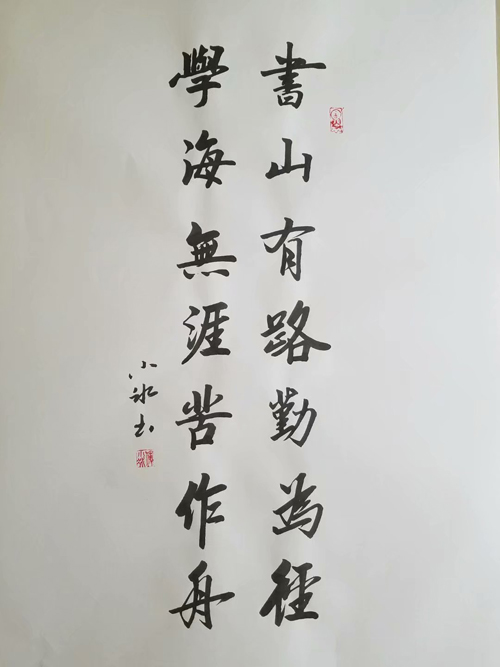 書山有路勤為徑
學海無涯苦作舟
小冰书